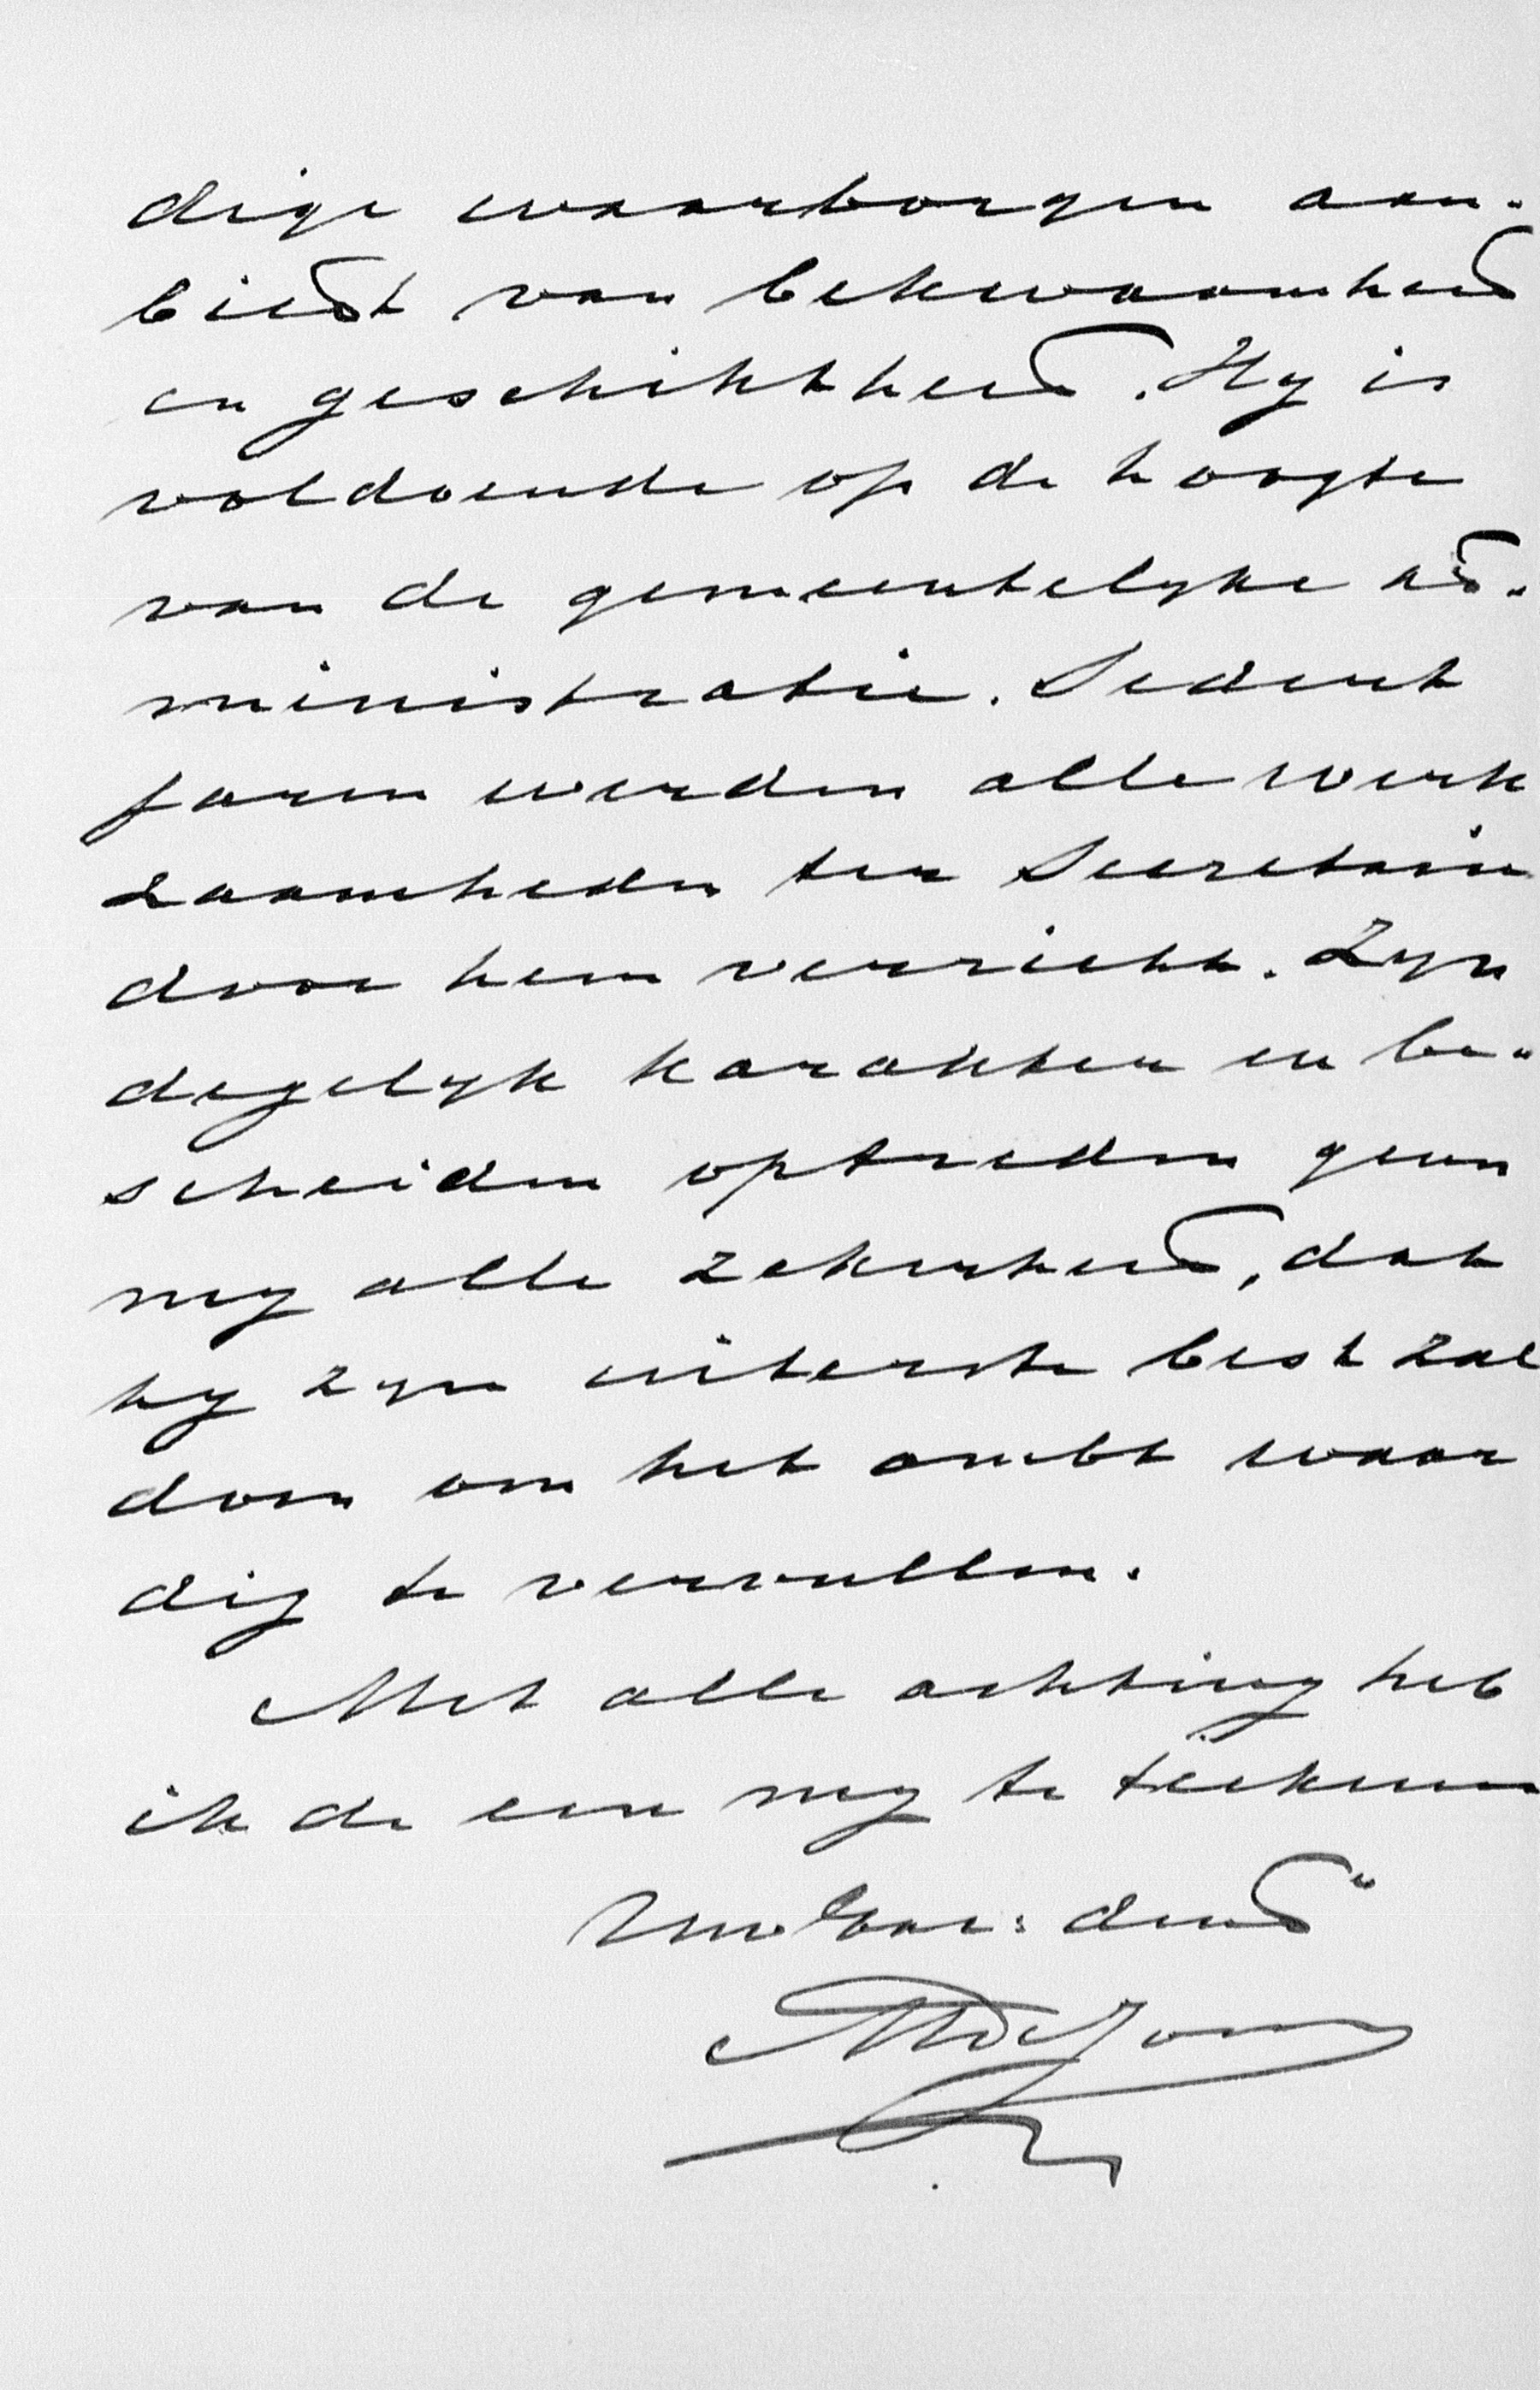 dige waarborgen aan-
biedt van bekwaamheid
en geschiktheid. Hy is
voldoende op de hoogte
van de gemeentelyke ad-
ministratie. Sedert
jaren werden alle werk
zaamheden ter Secretarie
door hem verricht. Zyn
degelyk karakter en be-
scheiden optreden geven
my alle zekerheid, dat
hy zyn uiterste best zal
doen om het ambt waar
dig te vervullen.
Met alle achting heb
ik de eer my te teekenen